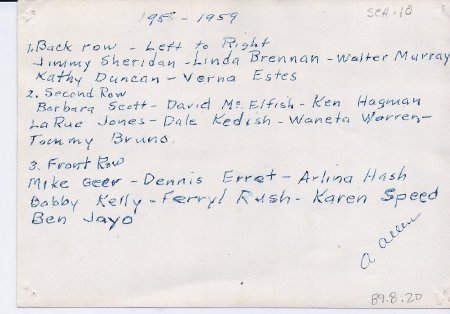 195 - 1959
SCH-10
1. Back row - Left to Right
Jimmy Sheridan - Linda Brennan - Walter Murray
Kathy Duncan - Verna Estes
2. Second Row
Barbara Scott - David Mc Elfish - Ken Hagman
LaRue Jones - Dale Kedish - Waneta Warren -
Tommy Bruno
3. Front Row
Mike Geer - Dennis Errot - Arlina Hash
Bobby Kelly - Ferryl Rush - Karen Speed
Ben Jayo
A. Allen
89.8.20